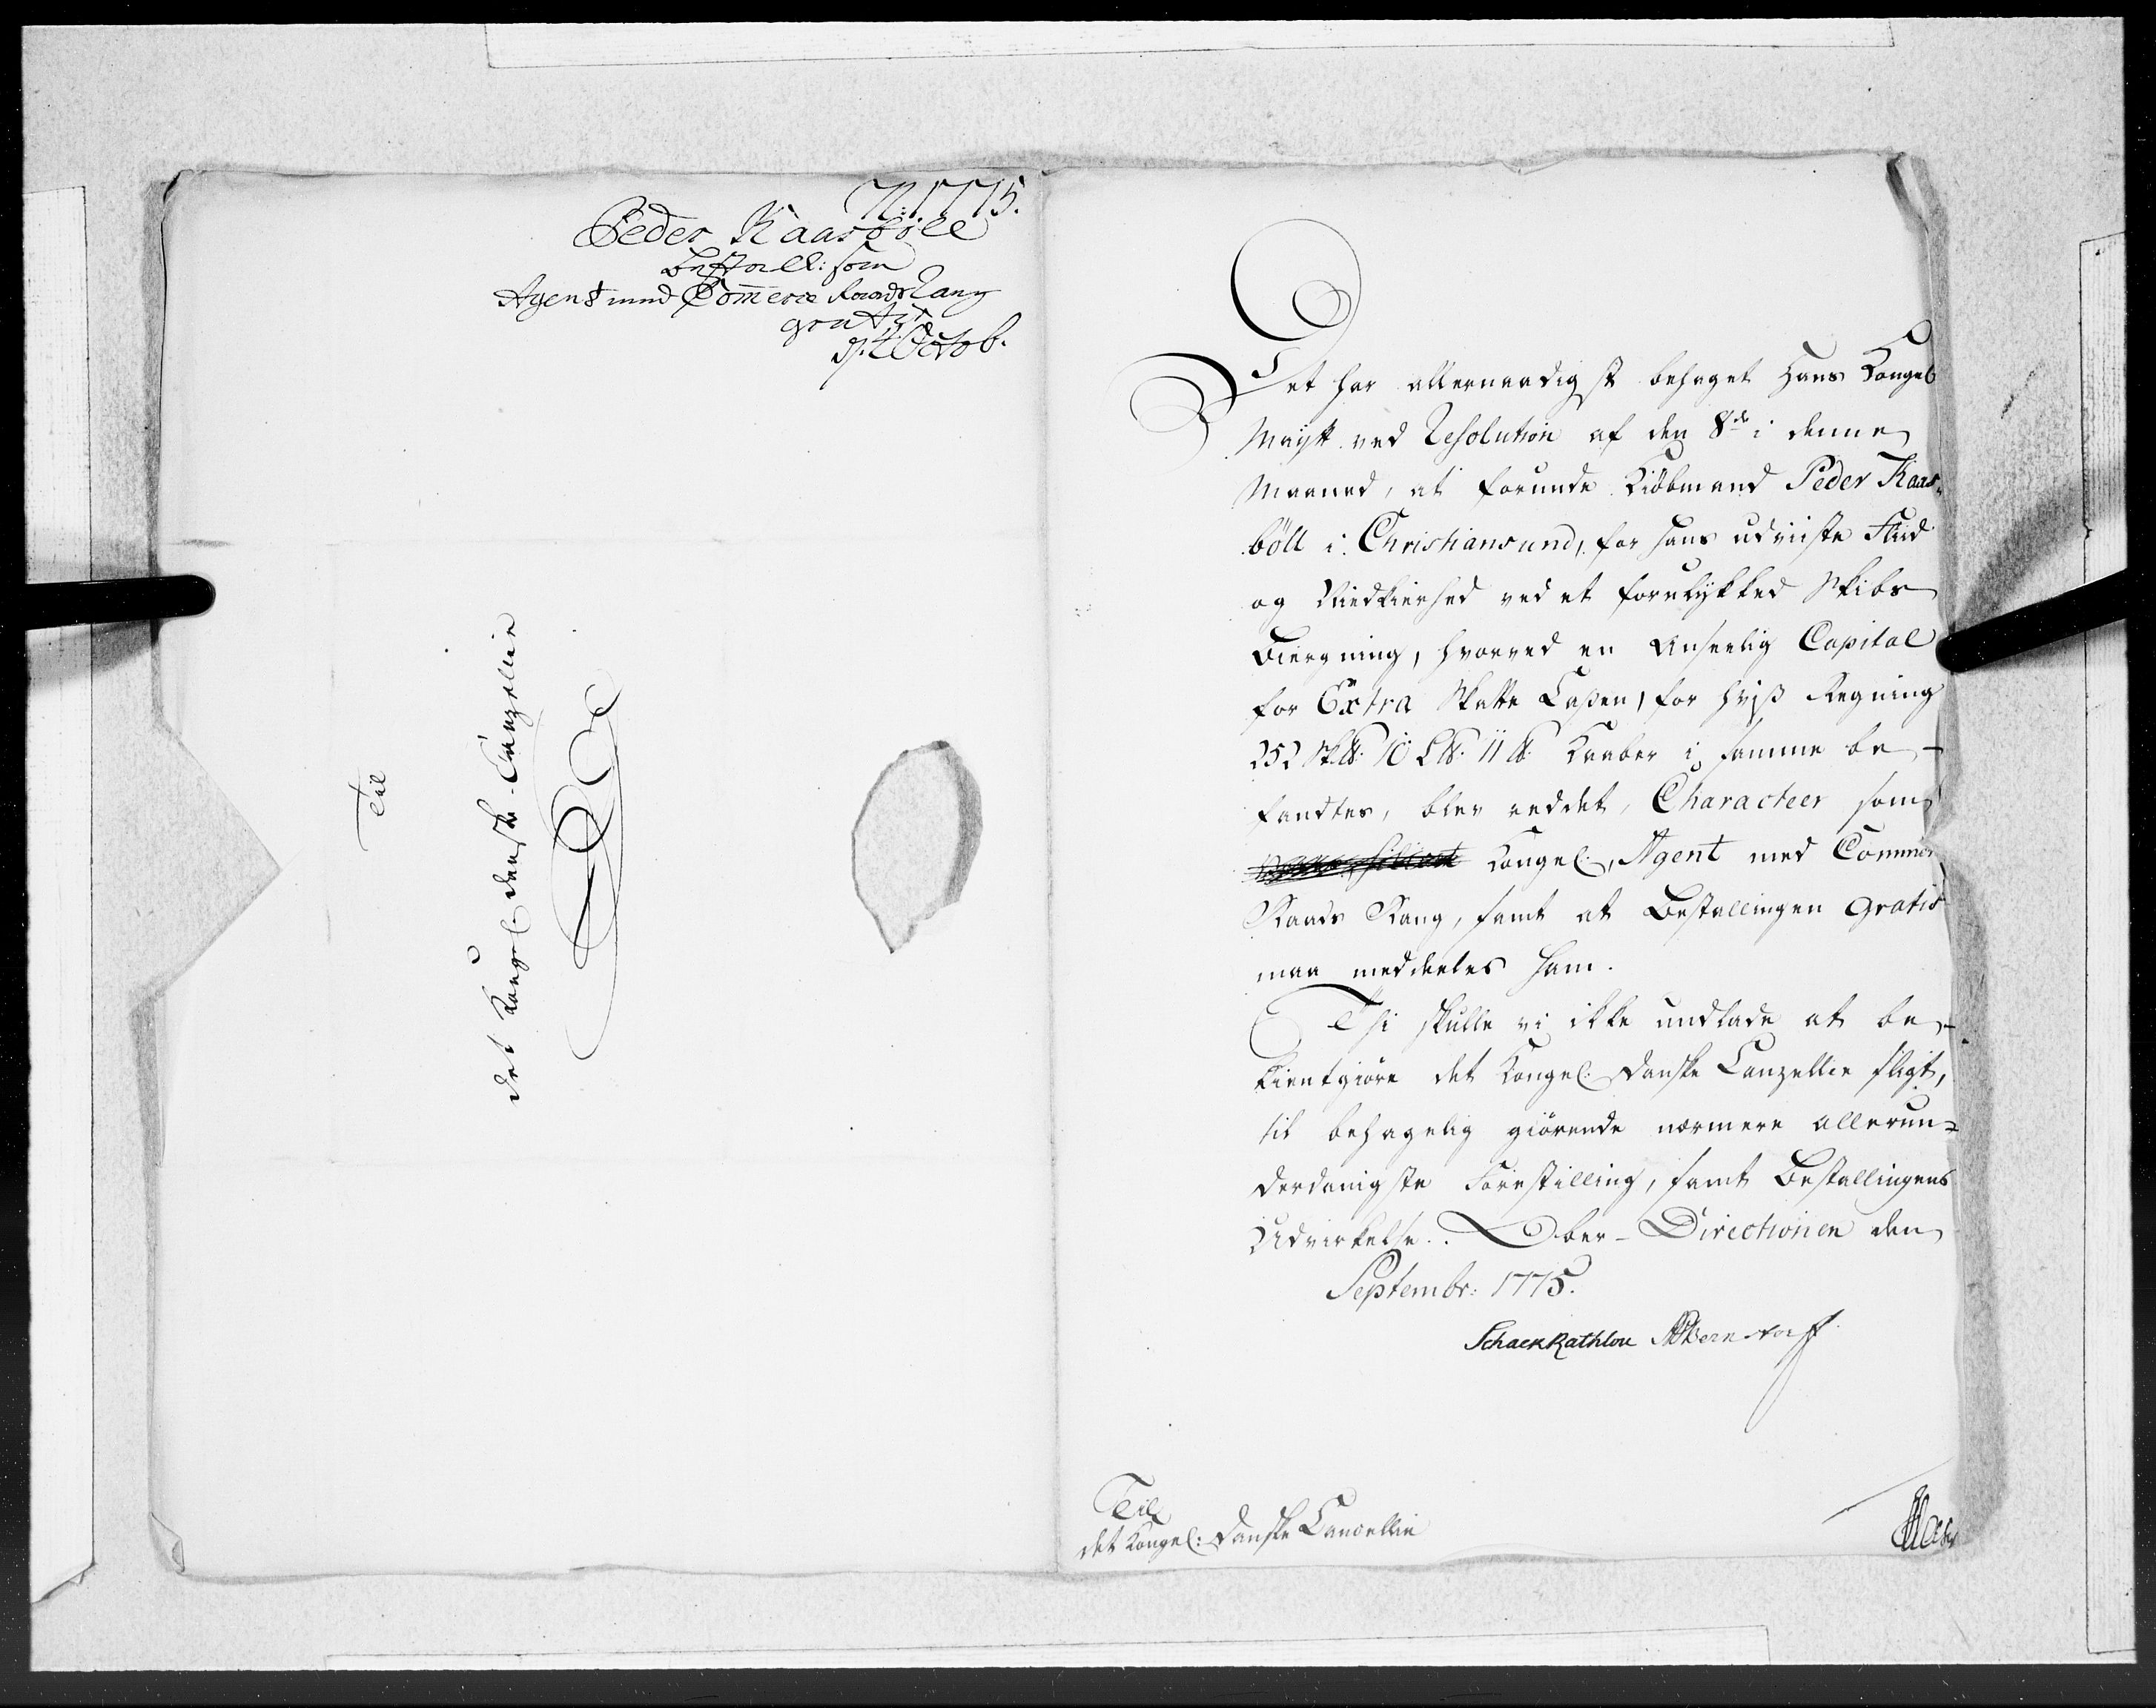 N: 1775.
Peder Kaasböll
bestall: som
Agent med Com̄erce Raads Rang
gratis
d. 12 Octob.
Til
det Kongel. danske Canzellie
Det har allernaadigst behaget Hans Kongel
Mayst. ved Resolution af den 8de i denne
Maaned, at forunde Kiöbmand Peder Kaas-
böll i Christiansund, for hans udviiste Fliid
og Vindskiærhed ved et forulykked Skibs
Biergning, hvorved en Anseelig Capital
for Extra Skatte Caßen, for hviß Regning
252 Sk℔. 10 L℔. 11 ℔. Kaaber i samme be-
fandtes, blev reddet, Characteer som
Kongel. Agent med Commer
Raads Rang, samt at Bestallingen gratis
maa meddeeles ham.
Thi skulle vi ikke undlade at be-
kientgiöre det Kongel. Danske Canzellie sligt,
til behagelig giörende nærmere allerun-
derdanigste Forestilling, samt Bestallingens
Udvirkelse. Ober-Directionen den
Septembr: 1775.
SchackRathlou APBernstorff
Til
det Kongel: Danske Cancellie